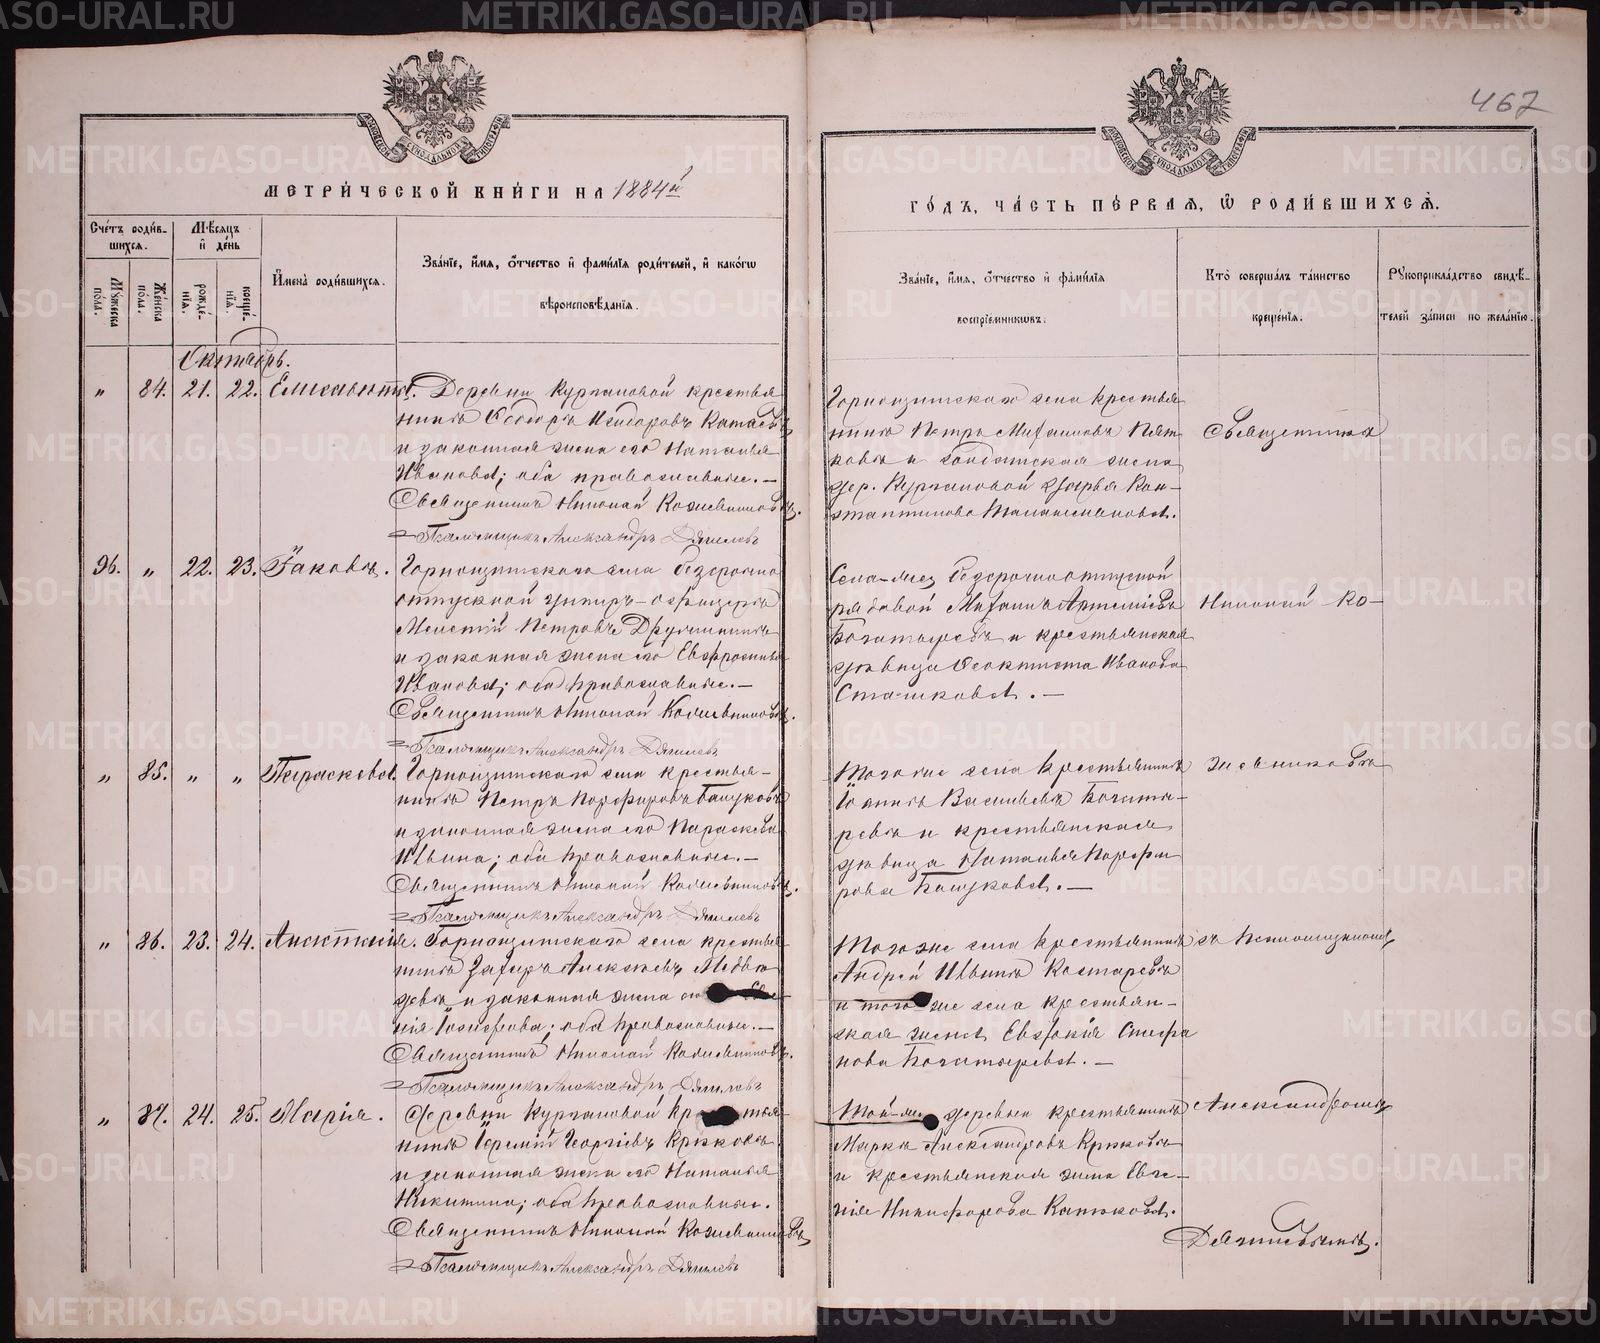 467
МЕТРИ́ЧЕСКОЙ КНИ́ГИ НА 1884й
ГО́ДЪ, ЧА́СТЬ ПЕ́РВАЯ, Ѡ РОДИ́ВШИХСЯ.
Сче́тъ роди́в-
шихся.
Мѣ́сяцъ
и де́нь
Му́жеска
по́ла.
Же́нска
по́ла.
рожде́-
нія.
креще́-
нія.
Имена̀ роди́вшихся.
Зва́ніе, и́мя, о́тчество и фами́лія роди́телей, и како́гѡ
вѣроисповѣ́данія.
Зва́ніе, и́мя, о́тчество и фами́лія
воспріе́мникѡвъ.
Кто̀ соверша́лъ та́инство
креще́нія.
Рукоприкла́дство свидѣ́-
телей за́писи по жела́нію.
Октябрь.
" 84. 21. 22. Елисавета. Деревни Кургановой крестья
нинъ Ѳеодоръ Исидоровъ
и законная жена его Наталья
Иванова; оба православные. —
Священникъ Николай Кожевниковъ.
Псаломщикъ Александръ Дягилевъ
Горнощитскаго села крестья
нинъ Петръ Михаиловъ Пят
ковъ и солдатская жена
дер. Кургановой Дарья Кон-
стантинова
Священникъ
96. " 22. 23. Іаковъ. Горнощитскаго села безсрочно
отпускной унтеръ-офицеръ
Петровъ
и законная жена его Евфросинья
Иванова; оба православные. —
Священникъ Николай Кожевниковъ.
Псаломщикъ Александръ Дягилевъ
Села безсрочноотпускной
рядовой Михаилъ Артемьевъ
Богатыревъ и крестьянская
дѣвица Ѳеоктиста Иванова
Сташкова. —
Николай Ко-
" 85. " " Параскева. Горнощитскаго села крестья-
нинъ Петръ Порфировъ Башуковъ
и законная жена его Параскева
Ильина; оба православные. —
Священникъ Николай Кожевниковъ.
Псаломщикъ Александръ Дягилевъ
Того же села крестьянинъ
Іоаннъ Васильевъ Богаты-
ревъ и крестьянская
дѣвица Наталья Порфи
рова Башукова. —
жевниковъ
" 86. 23. 24. Горнощитскаго села крестья
нинъ Захаръ Алексѣевъ Медвѣ
девъ и законная жена его
нія Іосифова; оба православные. —
Священникъ Николай Кожевниковъ.
Псаломщикъ Александръ Дягилевъ
Того же села крестьянинъ
Андрей Ильинъ Костаревъ
и того же села крестьян-
ская жена Евдокія Стефа
нова Богатырева. —
съ Псаломщикомъ
" 87. 24. 25. Марія. Деревни Кургановой крестья-
нинъ Іеремій Георгіевъ Крюковъ
и законная жена его Наталья
Никитина; оба православные.
Священникъ Николай Кожевниковъ
Псаломщикъ Александръ Дягилевъ
Той-же деревни крестьянинъ
Маркъ Александровъ Крюковъ
и крестьянская жена Евге-
нія Никифорова Катюкова.
Александромъ
Дягилевымъ.